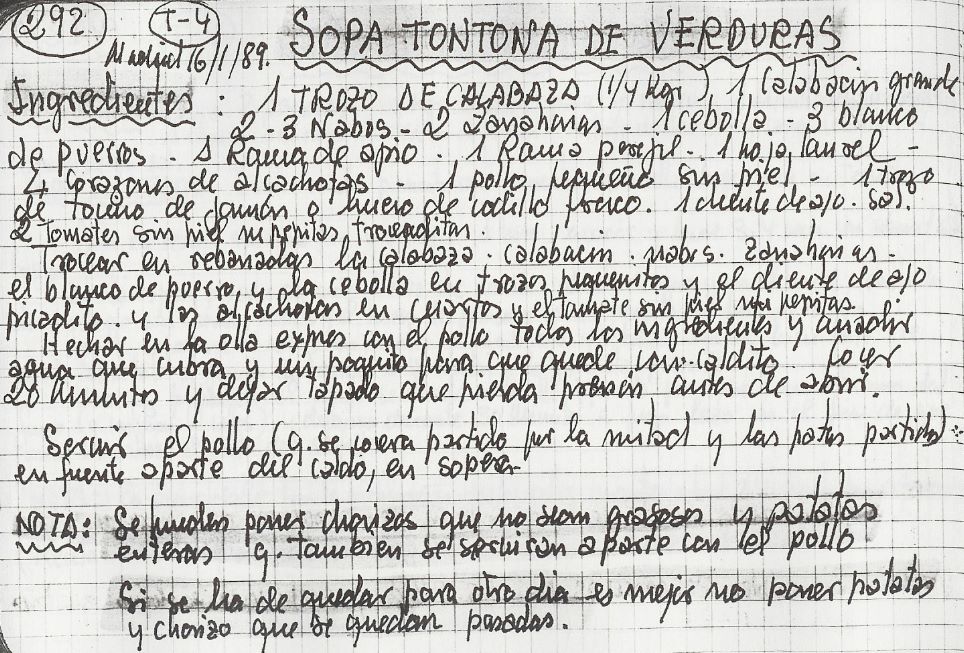 292 T-4 SOPA TONTONA DE VERDURAS
Madrid 16/1/89.
Ingredientes: 1 TROZO DE CALABAZA (1/4 Kgr), 1 Calabacin grande
2-3 Nabos - 2 Zanahorias - 1 cebolla - 3 blanco
de puerros - 1 Rama de apio - 1 Rama perejil - 1 hoja laurel -
4 corazones de alcachofas - 1 pollo pequeño sin piel - 1 trozo
de tocino de jamón o hueso de codillo fresco. 1 diente de ajo. sal.
2 Tomates sin piel ni pepitas, troceaditas.
Trocear en rebanadas la calabaza. calabacin. nabos. Zanahorias.
el blanco de puerro, y la cebolla en trozos pequeñitos y el diente de ajo
picadito. y las alcachofas en cuartos y el tomate sin piel ni pepitas.
Hechar en la olla expres con el pollo todos los ingredientes y añadir
agua que cubra y un poquito para que quede con caldito. Cocer
20 minutos y dejar tapado que pierda presión antes de abrir.
Servir el pollo (q. se cocera partido por la mitad y las patas partidas)
en fuente aparte del caldo, en sopera.
NOTA: Se pueden poner chorizos que no sean grasosos y patatas
enteras q. tambien se serviran aparte con el pollo
Si se ha de quedar para otro dia es mejor no poner patatas
y chorizo que se quedan pasadas.